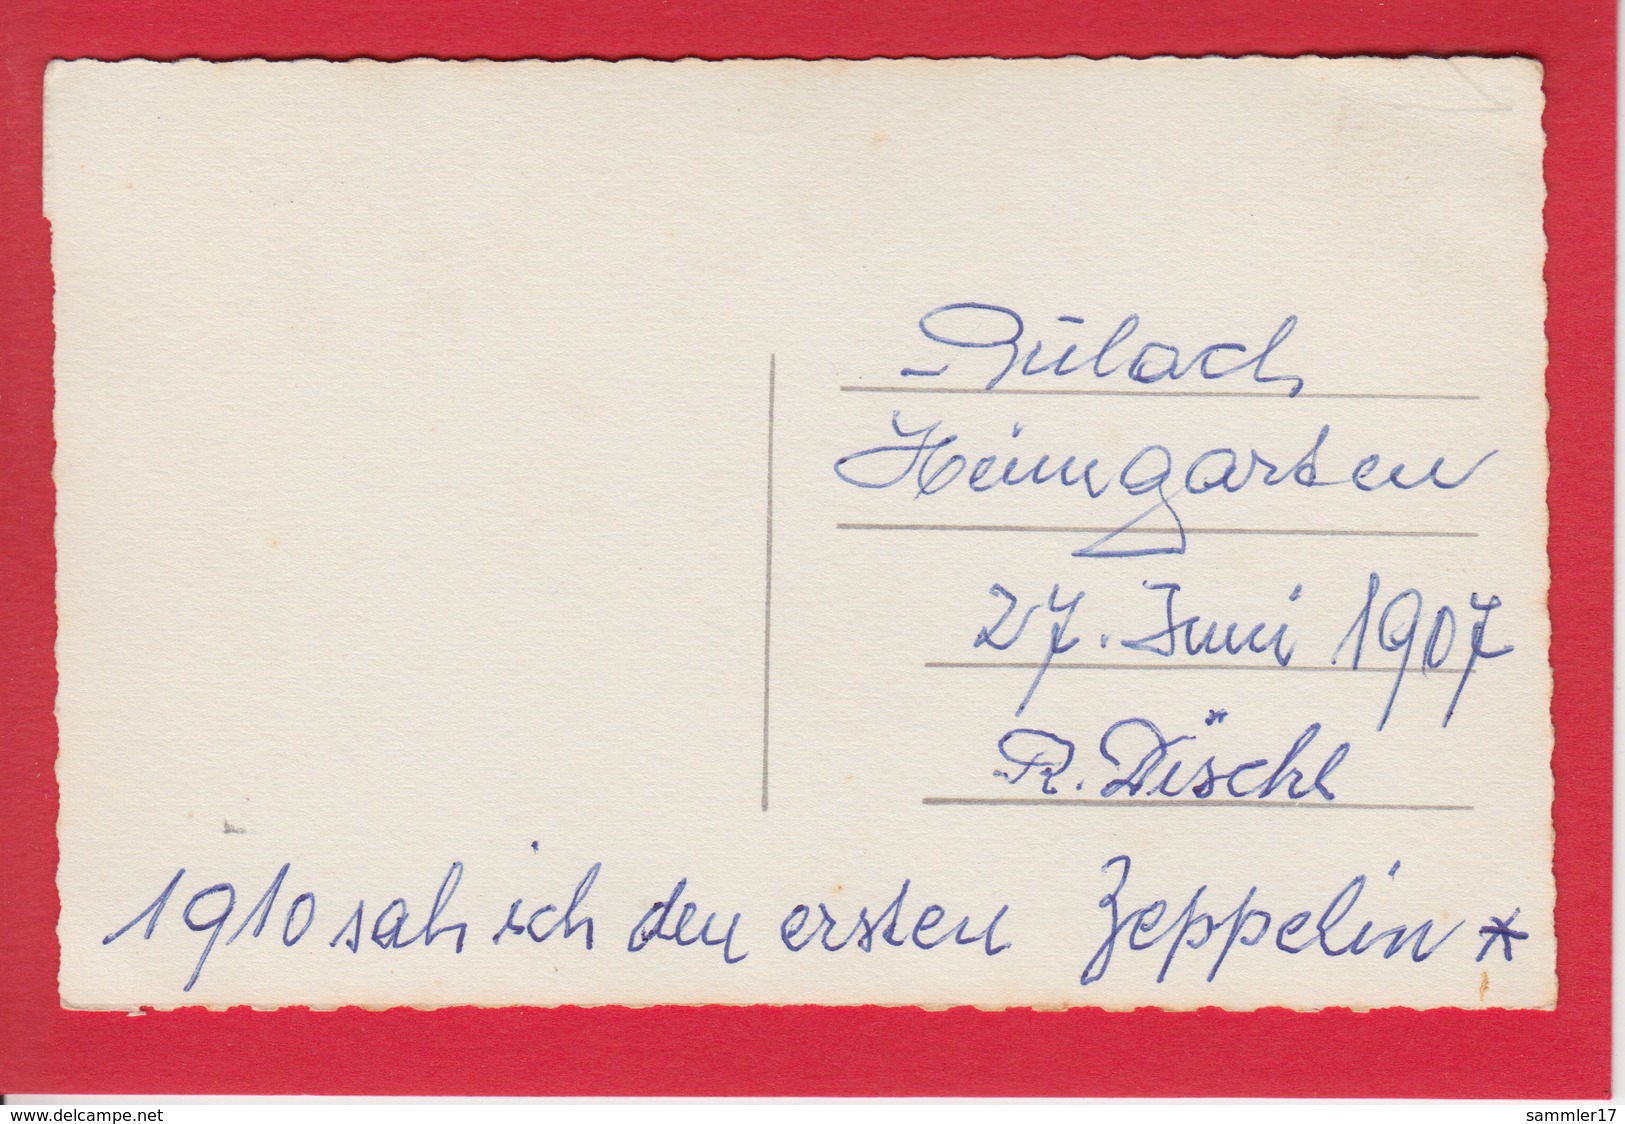 Bülach
Heimgarten
27. Juni 1907
R. Düschl
1910 sah ich den ersten Zeppelin *
www.delcampe.net
sammler17